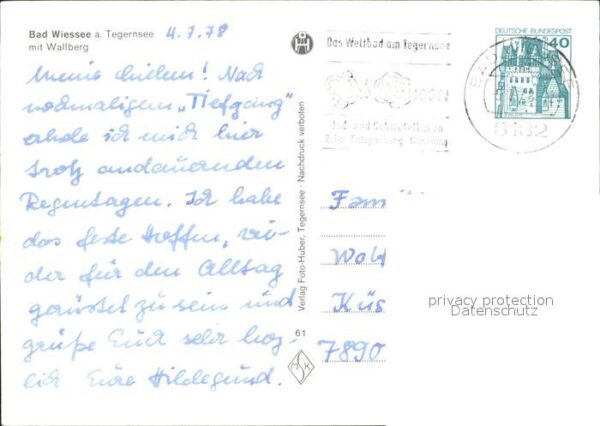 Bad Wiessee a. Tegernsee 4.7.78
mit Wallberg
Meine Lieben! Nach
nochmaligem „Tiefgang"
erhole ich mich hier
trotz andauernden
Regentagen. Ich habe
das feste Hoffen, wie-
der für den Alltag
gerüstet zu sein und
grüße Euch sehr herz-
lich Eure Hildegund.
Verlag Foto-Huber, Tegernsee · Nachdruck verboten
61
Das Weltbad am Tegernsee
Jod- und Schwefelbäder
DEUTSCHE BUNDESPOST
40
BAD
Fam
Wol
Küs
7890
privacy protection
Datenschutz